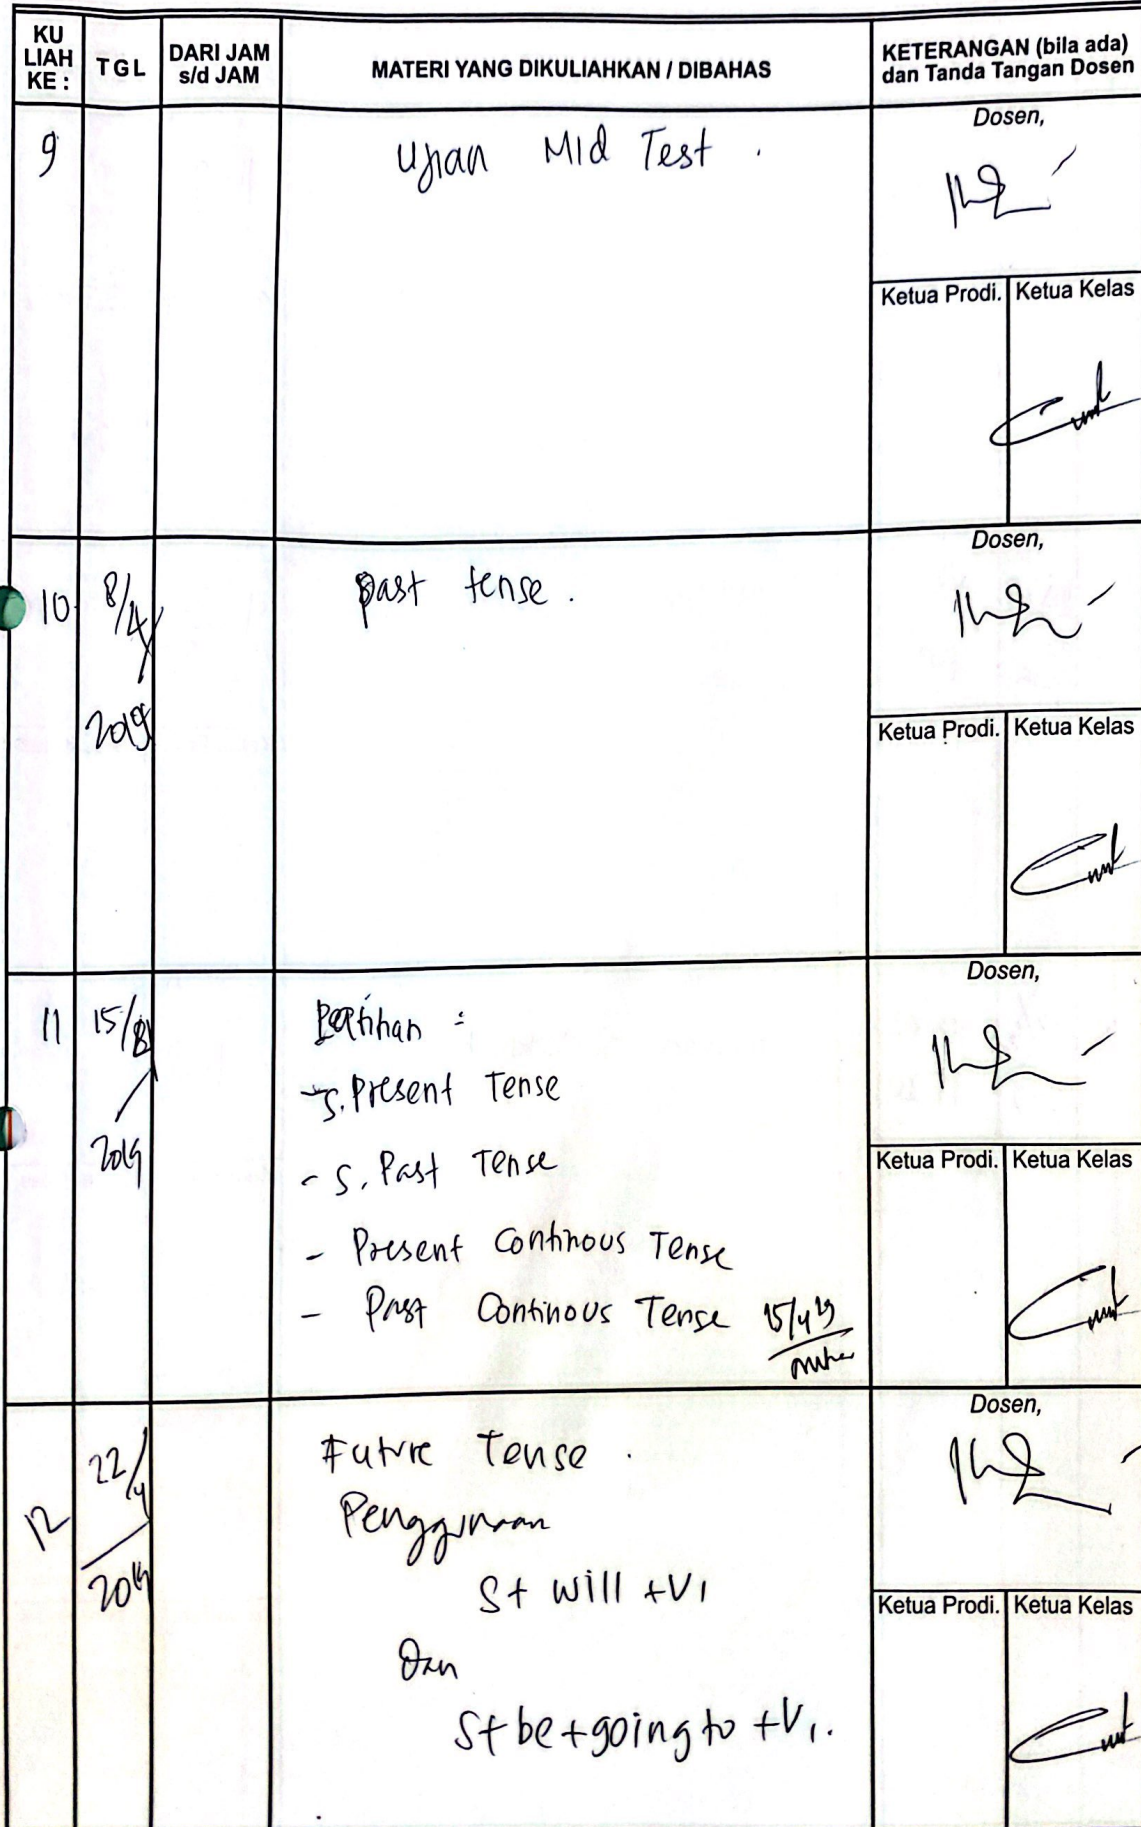 KU
LIAH
KE :
TGL
DARI JAM
s/d JAM
MATERI YANG DIKULIAHKAN / DIBAHAS
KETERANGAN (bila ada)
dan Tanda Tangan Dosen
9
Ujian Mid Test .
Dosen,
Ketua Prodi. Ketua Kelas
10
8/4
2019
past tense .
Dosen,
Ketua Prodi. Ketua Kelas
11
15/8
2019
:
- S. Present Tense
- S. Past Tense
- Present Continous Tense
- Past Continous Tense 15/4 19
Dosen,
Ketua Prodi. Ketua Kelas
12
22/4
2019
Future Tense .
Penggunaan
S + will + V1
Dan
S + be + going to + V1.
Dosen,
Ketua Prodi. Ketua Kelas